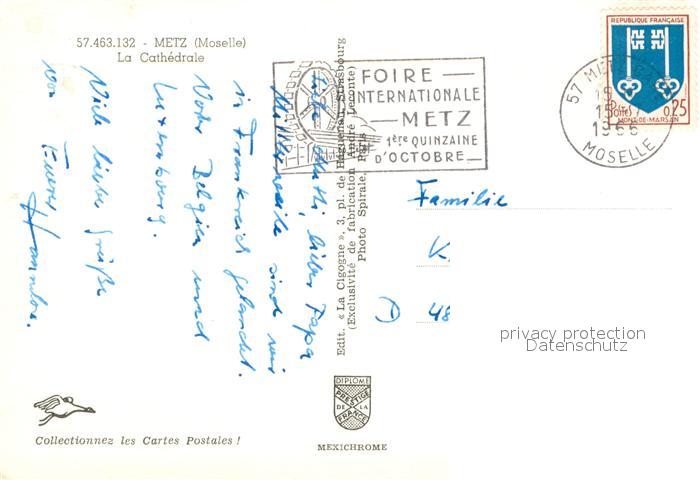 57.463.132 - METZ (Moselle)
La Cathédrale
FOIRE
INTERNATIONALE
METZ
1ère QUINZAINE
D'OCTOBRE
REPUBLIQUE FRANÇAISE
Postes 0,25
MONT-DE-MARSAN
57 METZ
15
1966
MOSELLE
Liebe Mutti, lieber Papa
Mittlerweile sind wir
in Frankreich gelandet.
Vorher Belgien und
Luxembourg.
Viele liebe Grüße
von Eurer
Hannelore.
Edit. « La Cigogne », 3, pl. de Haguenau, Strasbourg
(Exclusivité de fabrication André Leconte)
Photo Spirale, Paris
Familie
K
D 48
privacy protection
Datenschutz
DIPLOME
PRESTIGE
DE LA
FRANCE
Collectionnez les Cartes Postales !
MEXICHROME